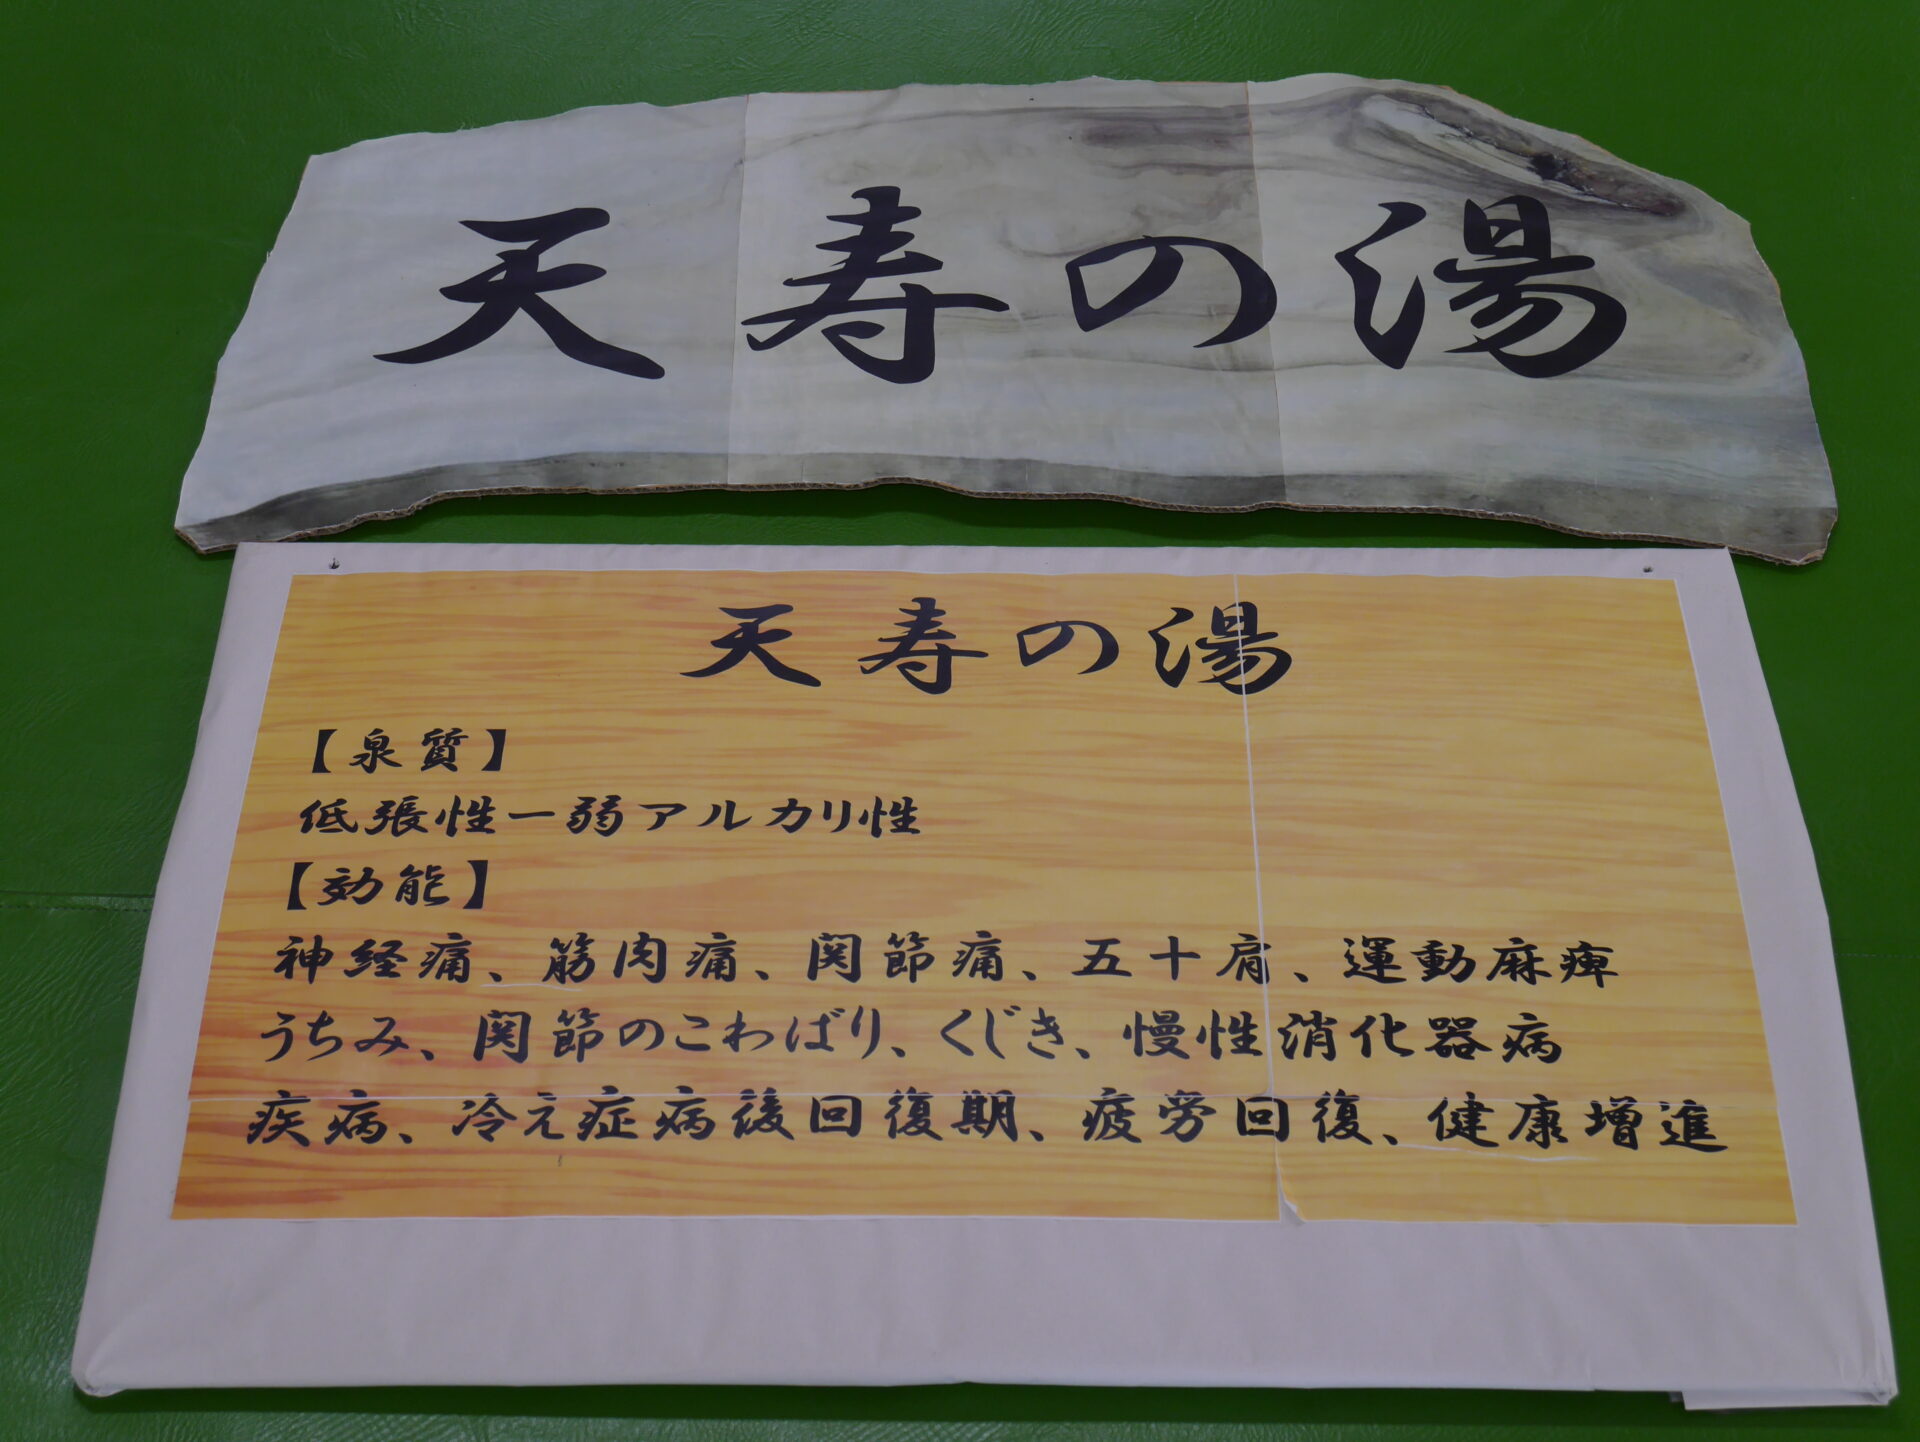 天寿の湯
天寿の湯
【泉質】
低張性ー弱アルカリ性
【効能】
神経痛、筋肉痛、関節痛、五十肩、運動麻痺
うちみ、関節のこわばり、くじき、慢性消化器病
疾病、冷え症病後回復期、疲労回復、健康増進